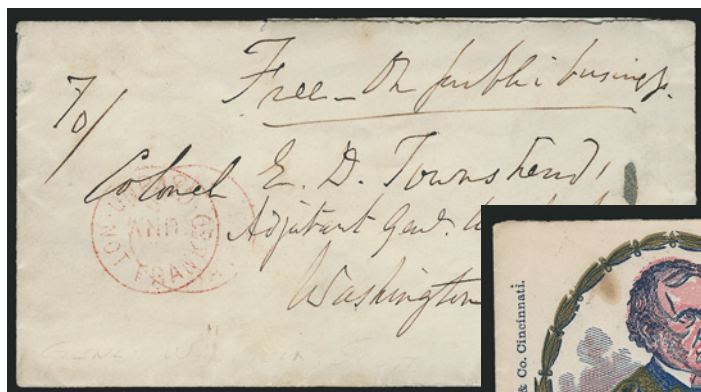 Free - On public business.
To/
Colonel E. D. Townsend,
Adjutant Genl.
Washington
NOT FRANK
& Co. Cincinnati.